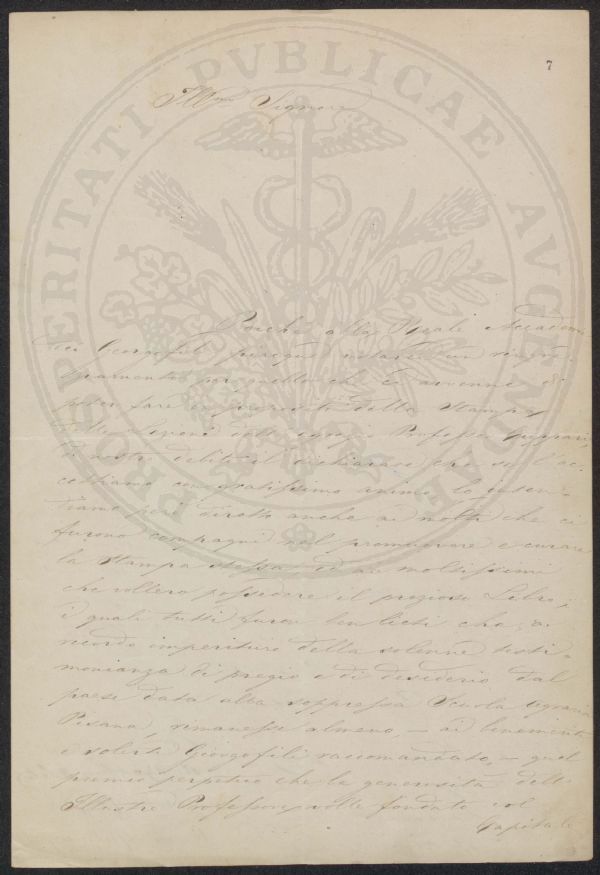 7
PROSPERITATI PVBLICAE AVGENDAE
Ill.mo Signore
Poiché alla Reale Accademia
dei Georgofili piacque votare un ringra-
ziamento per quello che le avvenne di
poter fare in proposito della Stampa
delle Lezioni dell'egregio Profess.
è nostro debito il dichiarare che se l'ac-
cettiamo con gratissimo animo lo inten-
diamo però diretto anche ai molti che ci
furono compagni nel promuovere e curare
la Stampa stessa ed ai moltissimi
che vollero possedere il prezioso Libro,
i quali tutti furon ben lieti che, a
ricordo imperituro della solenne testi-
monianza di pregio e di desiderio dal
paese data alla soppressa Scuola Agraria
Pisana, rimanesse almeno, - ai benemeriti
e solerti Georgofili raccomandato, - quel
premio perpetuo che la generosità dell'
Illustre Professore volle fondato col
Capitale